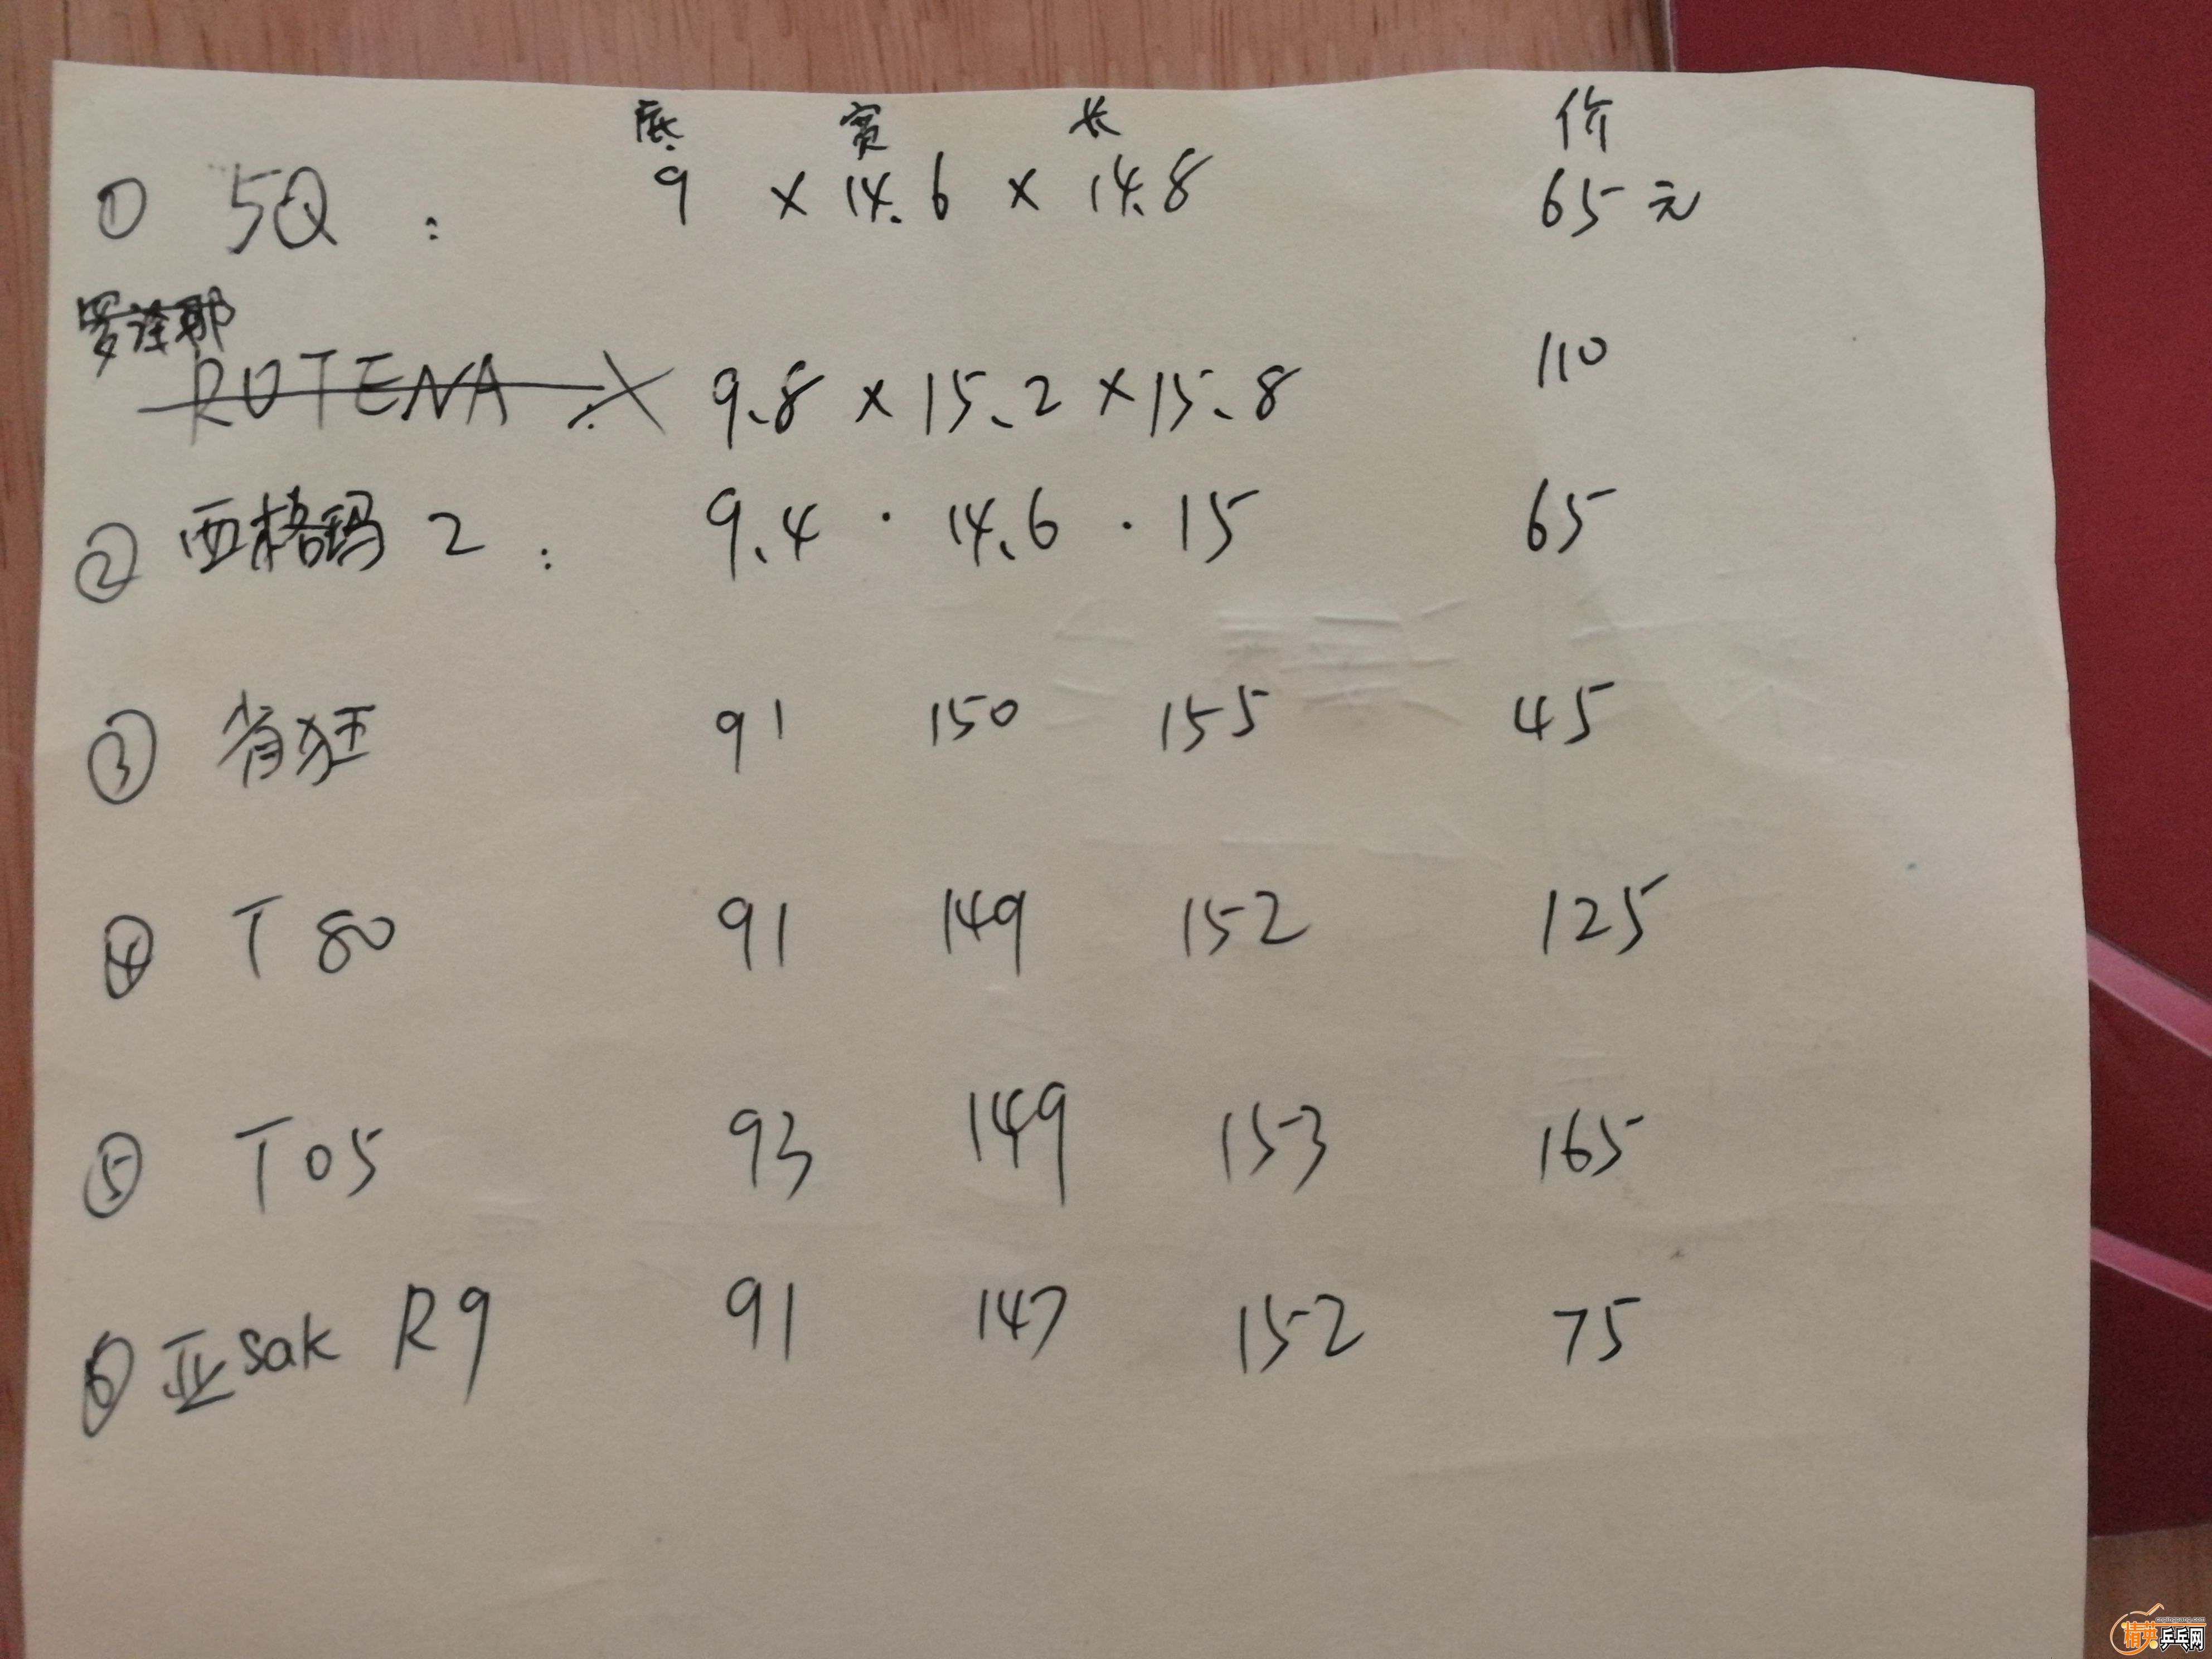 底 宽 长 价
① 5Q : 9 × 14.6 × 14.8 65元
罗诠耶
ROTENA : × 9.8 × 15.2 × 15.8 110
② 西格玛 2 : 9.4 · 14.6 · 15 65
③ 省狂 91 150 155 45
④ T 80 91 149 152 125
⑤ T 05 93 149 153 165
⑥ 亚sak R9 91 147 152 75
精英乒乓网